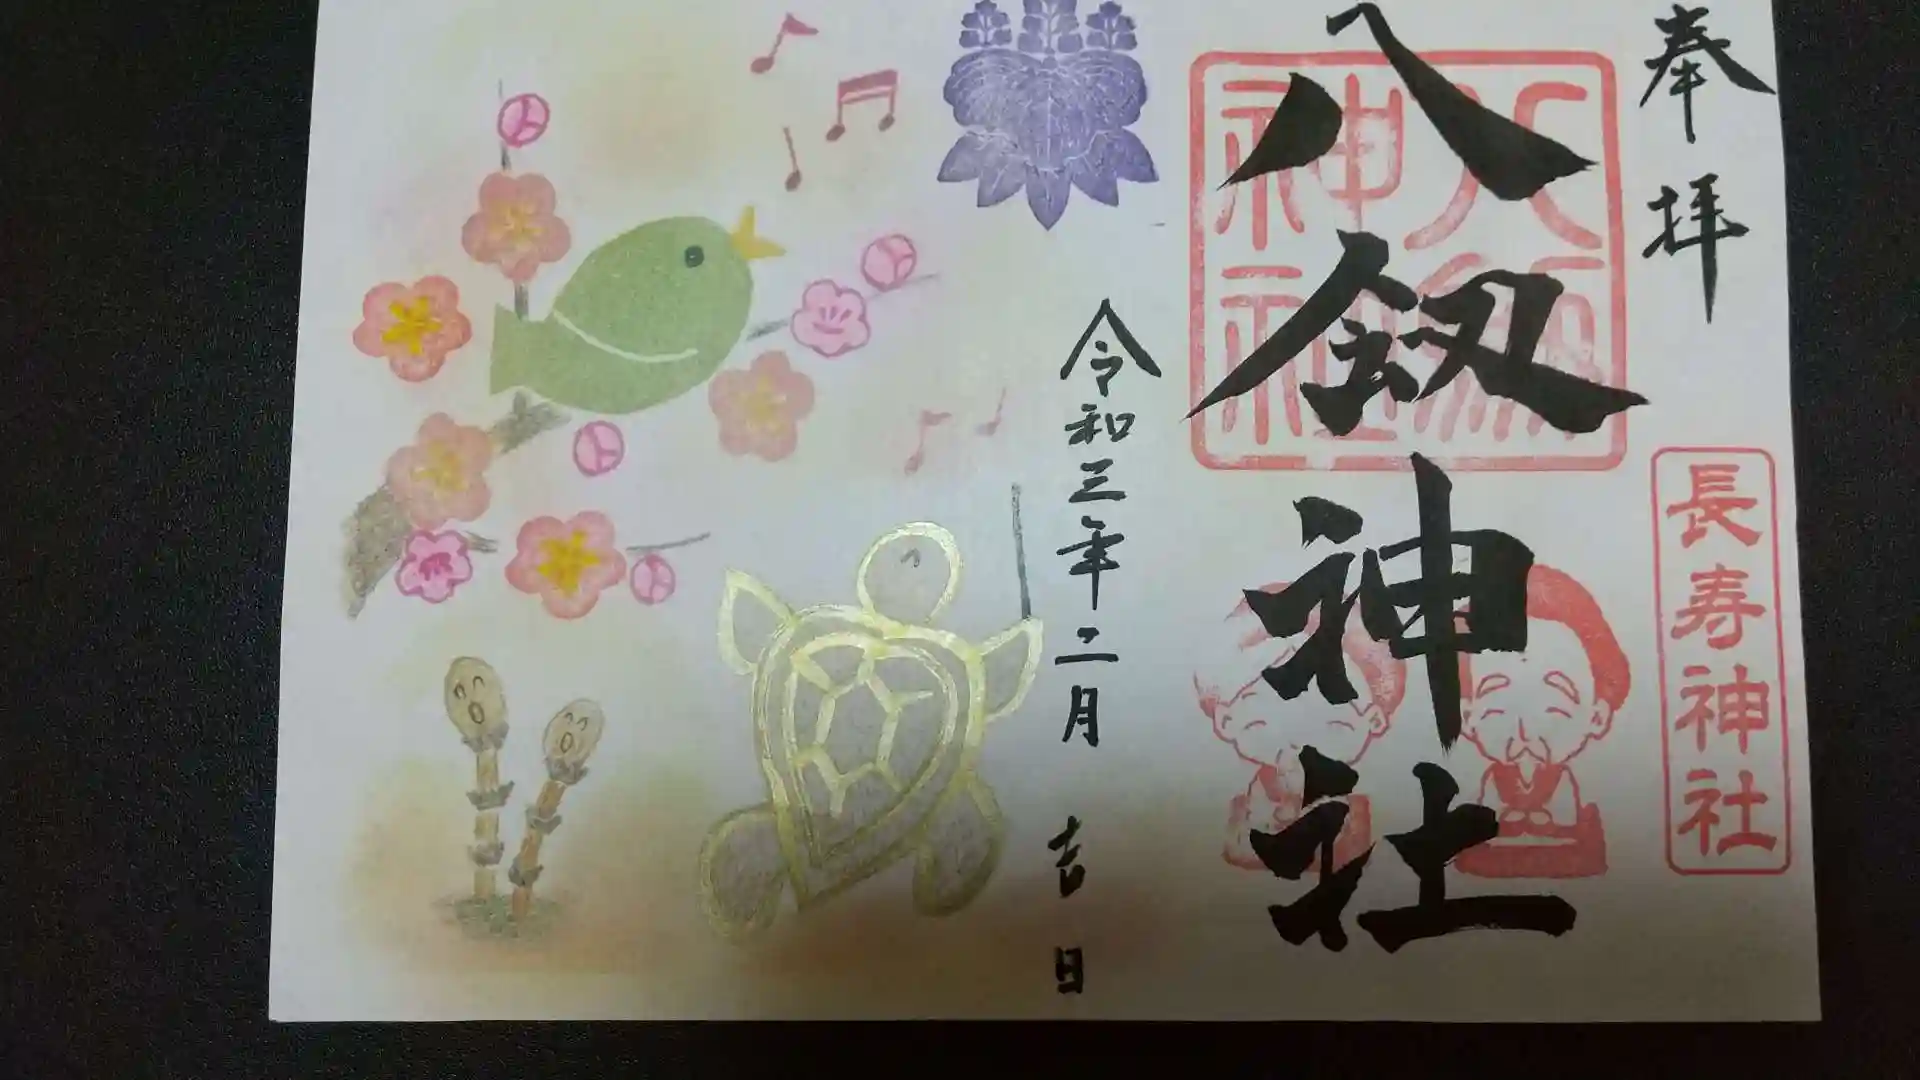 奉拝
八剱神社
八剱神社
長寿神社
令和三年二月 吉日